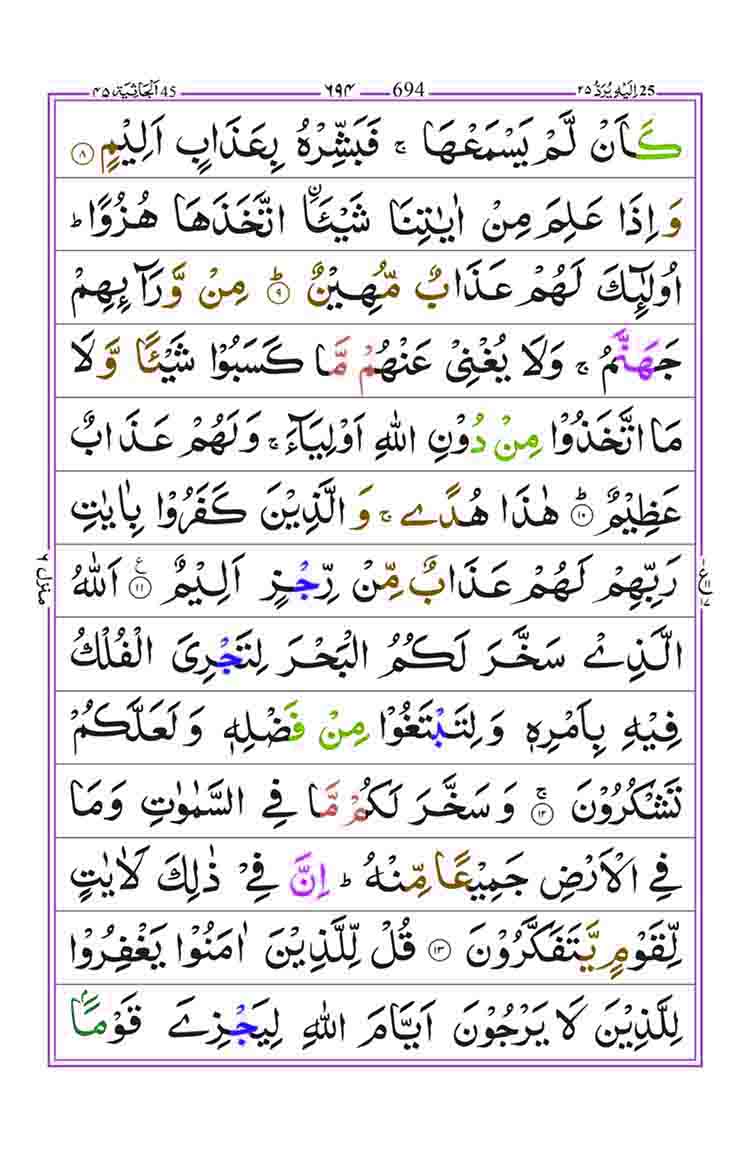 ٤٥ اَلْجَاثِيَة 45 ٦٩٤ 694 ٢٥ اِلَيْهِ يُرَدُّ 25
كَاَنْ لَّمْ يَسْمَعْهَا ۚ فَبَشِّرْهُ بِعَذَابٍ اَلِيْمٍ ۝٨
وَ اِذَا عَلِمَ مِنْ اٰيٰتِنَا شَيْـَٔاۨ اتَّخَذَهَا هُزُوًا ؕ
اُولٰٓئِكَ لَهُمْ عَذَابٌ مُّهِيْنٌ ؕ۝٩ مِنْ وَّرَآئِهِمْ
جَهَنَّمُ ۚ وَلَا يُغْنِيْ عَنْهُمْ مَّا كَسَبُوْا شَيْـًٔا وَّلَا
مَا اتَّخَذُوْا مِنْ دُوْنِ اللّٰهِ اَوْلِيَآءَ ۚ وَلَهُمْ عَذَابٌ
عَظِيْمٌ ؕ۝١٠ هٰذَا هُدًے ۚ وَ الَّذِيْنَ كَفَرُوْا بِاٰيٰتِ
رَبِّهِمْ لَهُمْ عَذَابٌ مِّنْ رِّجْزٍ اَلِيْمٌ ۝١١ ع اَللّٰهُ
الَّذِے سَخَّرَ لَكُمُ الْبَحْرَ لِتَجْرِيَ الْفُلْكُ
فِيْهِ بِاَمْرِهٖ وَلِتَبْتَغُوْا مِنْ فَضْلِهٖ وَلَعَلَّكُمْ
تَشْكُرُوْنَ ۚ۝١٢ وَسَخَّرَ لَكُمْ مَّا فِے السَّمٰوٰتِ وَمَا
فِے الْاَرْضِ جَمِيْعًا مِّنْهُ ؕ اِنَّ فِيْ ذٰلِكَ لَاٰيٰتٍ
لِّقَوْمٍ يَّتَفَكَّرُوْنَ ۝١٣ قُلْ لِّلَّذِيْنَ اٰمَنُوْا يَغْفِرُوْا
لِلَّذِيْنَ لَا يَرْجُوْنَ اَيَّامَ اللّٰهِ لِيَجْزِےَ قَوْمًاۢ
منزل ٦
ع ١١ ١٧